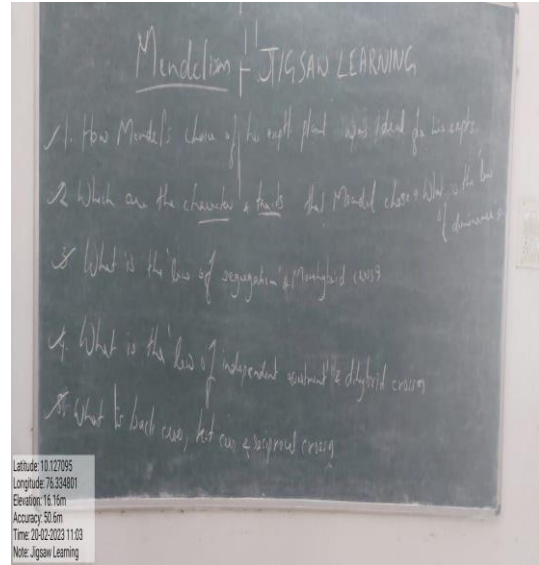 Mendelism - JIGSAW LEARNING
1. How Mendel's choice of his exptl plant was ideal for his expts.
2. Which are the character & traits that Mendel chose & What is the law
of dominance?
3. What is the law of segregation & Monohybrid cross?
4. What is the "law of independent assortment" & dihybrid cross?
5. What is back cross, test cross & reciprocal cross?
Latitude: 10.127095
Longitude: 76.334801
Elevation: 16.16m
Accuracy: 50.6m
Time: 20-02-2023 11:03
Note: Jigsaw Learning